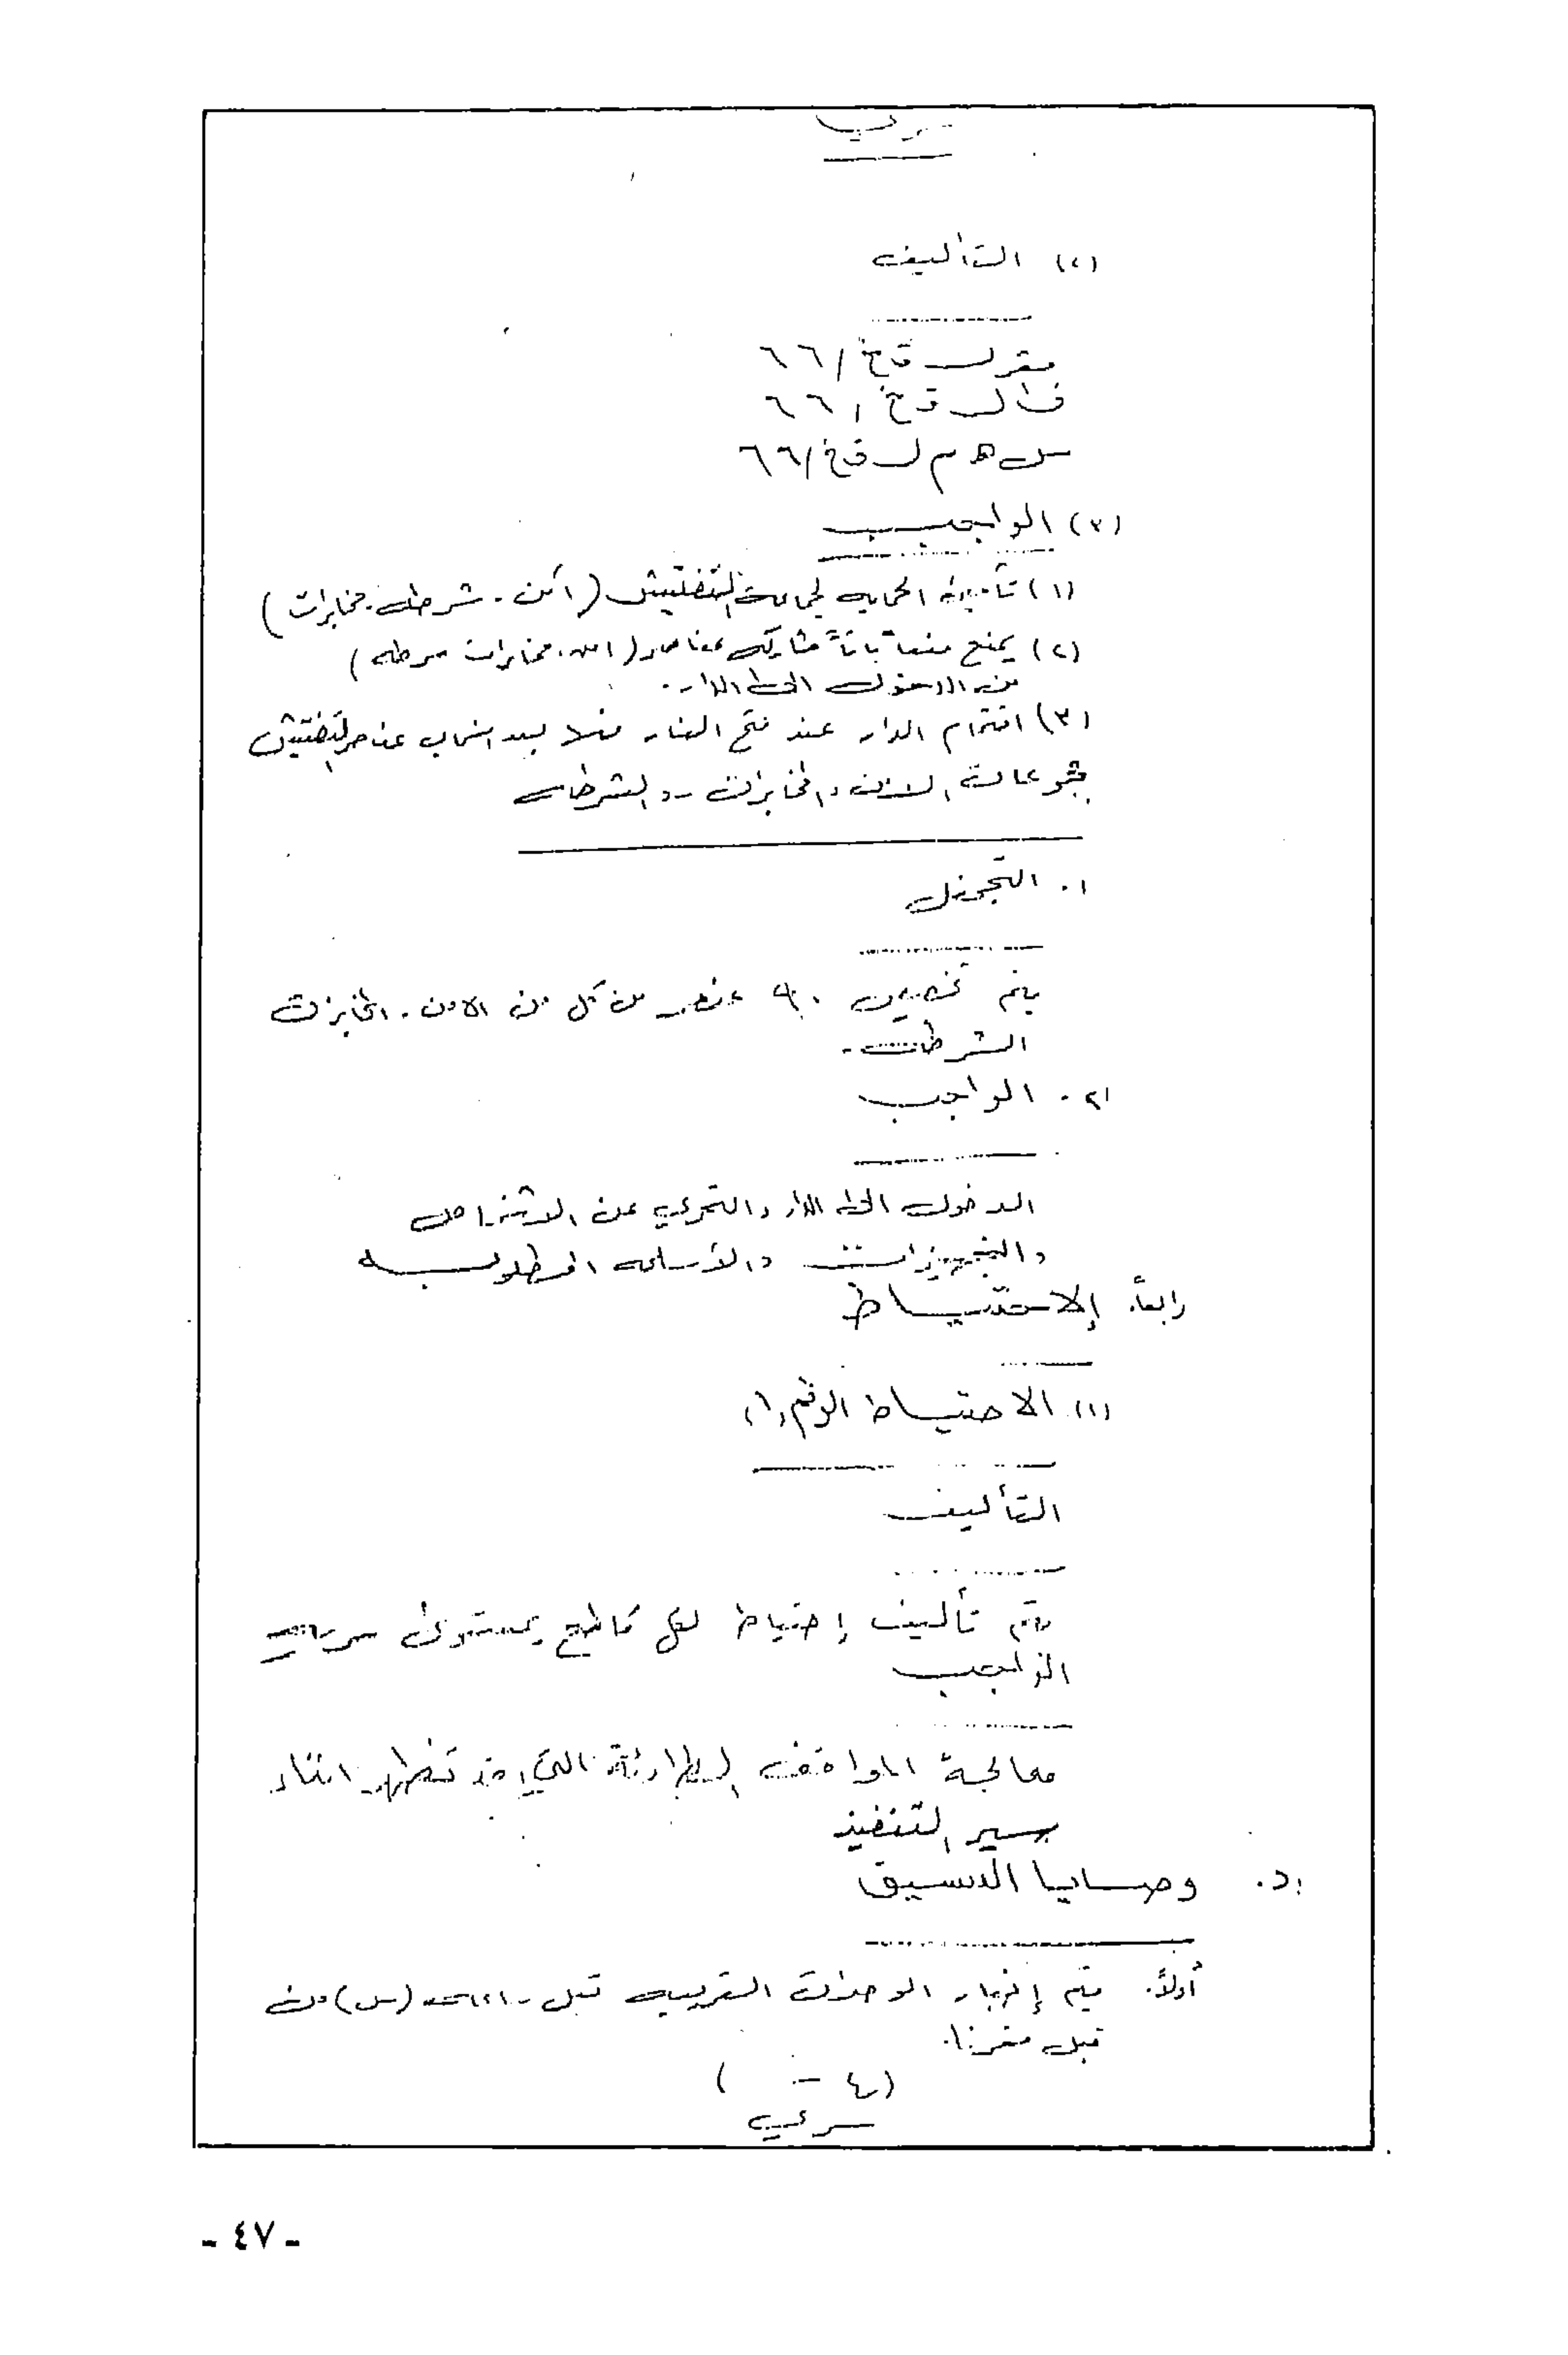 سري
(٢) التأليف
مقر ل ق خ / ٦٦
ف١ ل ق خ / ٦٦
س هـ م ل ق خ / ٦٦
(٣) الواجب
(١) تأمين الحمايه لجماعة التفتيش (أمن . شرطه . مخابرات)
(٢) يمنع منعاً باتاً مشاركه عناصر (امن . مخابرات شرطه)
من الدخول الى الدار .
(٣) اقتحام الدار عند فتح النار بعد انسحاب عناصر التفتيش
مجموعات الامن والمخابرات والشرطه
١. التجحفل
يتم تخصيص عنصر من كل من الامن . المخابرات
الشرطه .
٢. الواجب
الدخول الى الدار والتحري عن الاشخاص
والتجهيزات والأسلحه المطلوبه
رابعاً. الاحتياط
(١) الاحتياط الرقم (١)
التأليف
يتم تأليف إحتياط لكل قاطع بمستوى سريه
الواجب
معالجة المواقف الطارئة التي قد تظهر اثناء
سير التنفيذ
د. وصايا التنسيق
أولاً. يتم إخبار الوحدات القريبه قبل (س) من
قبل مقرنا.
(٤ - )
سري
- ٤٧ -